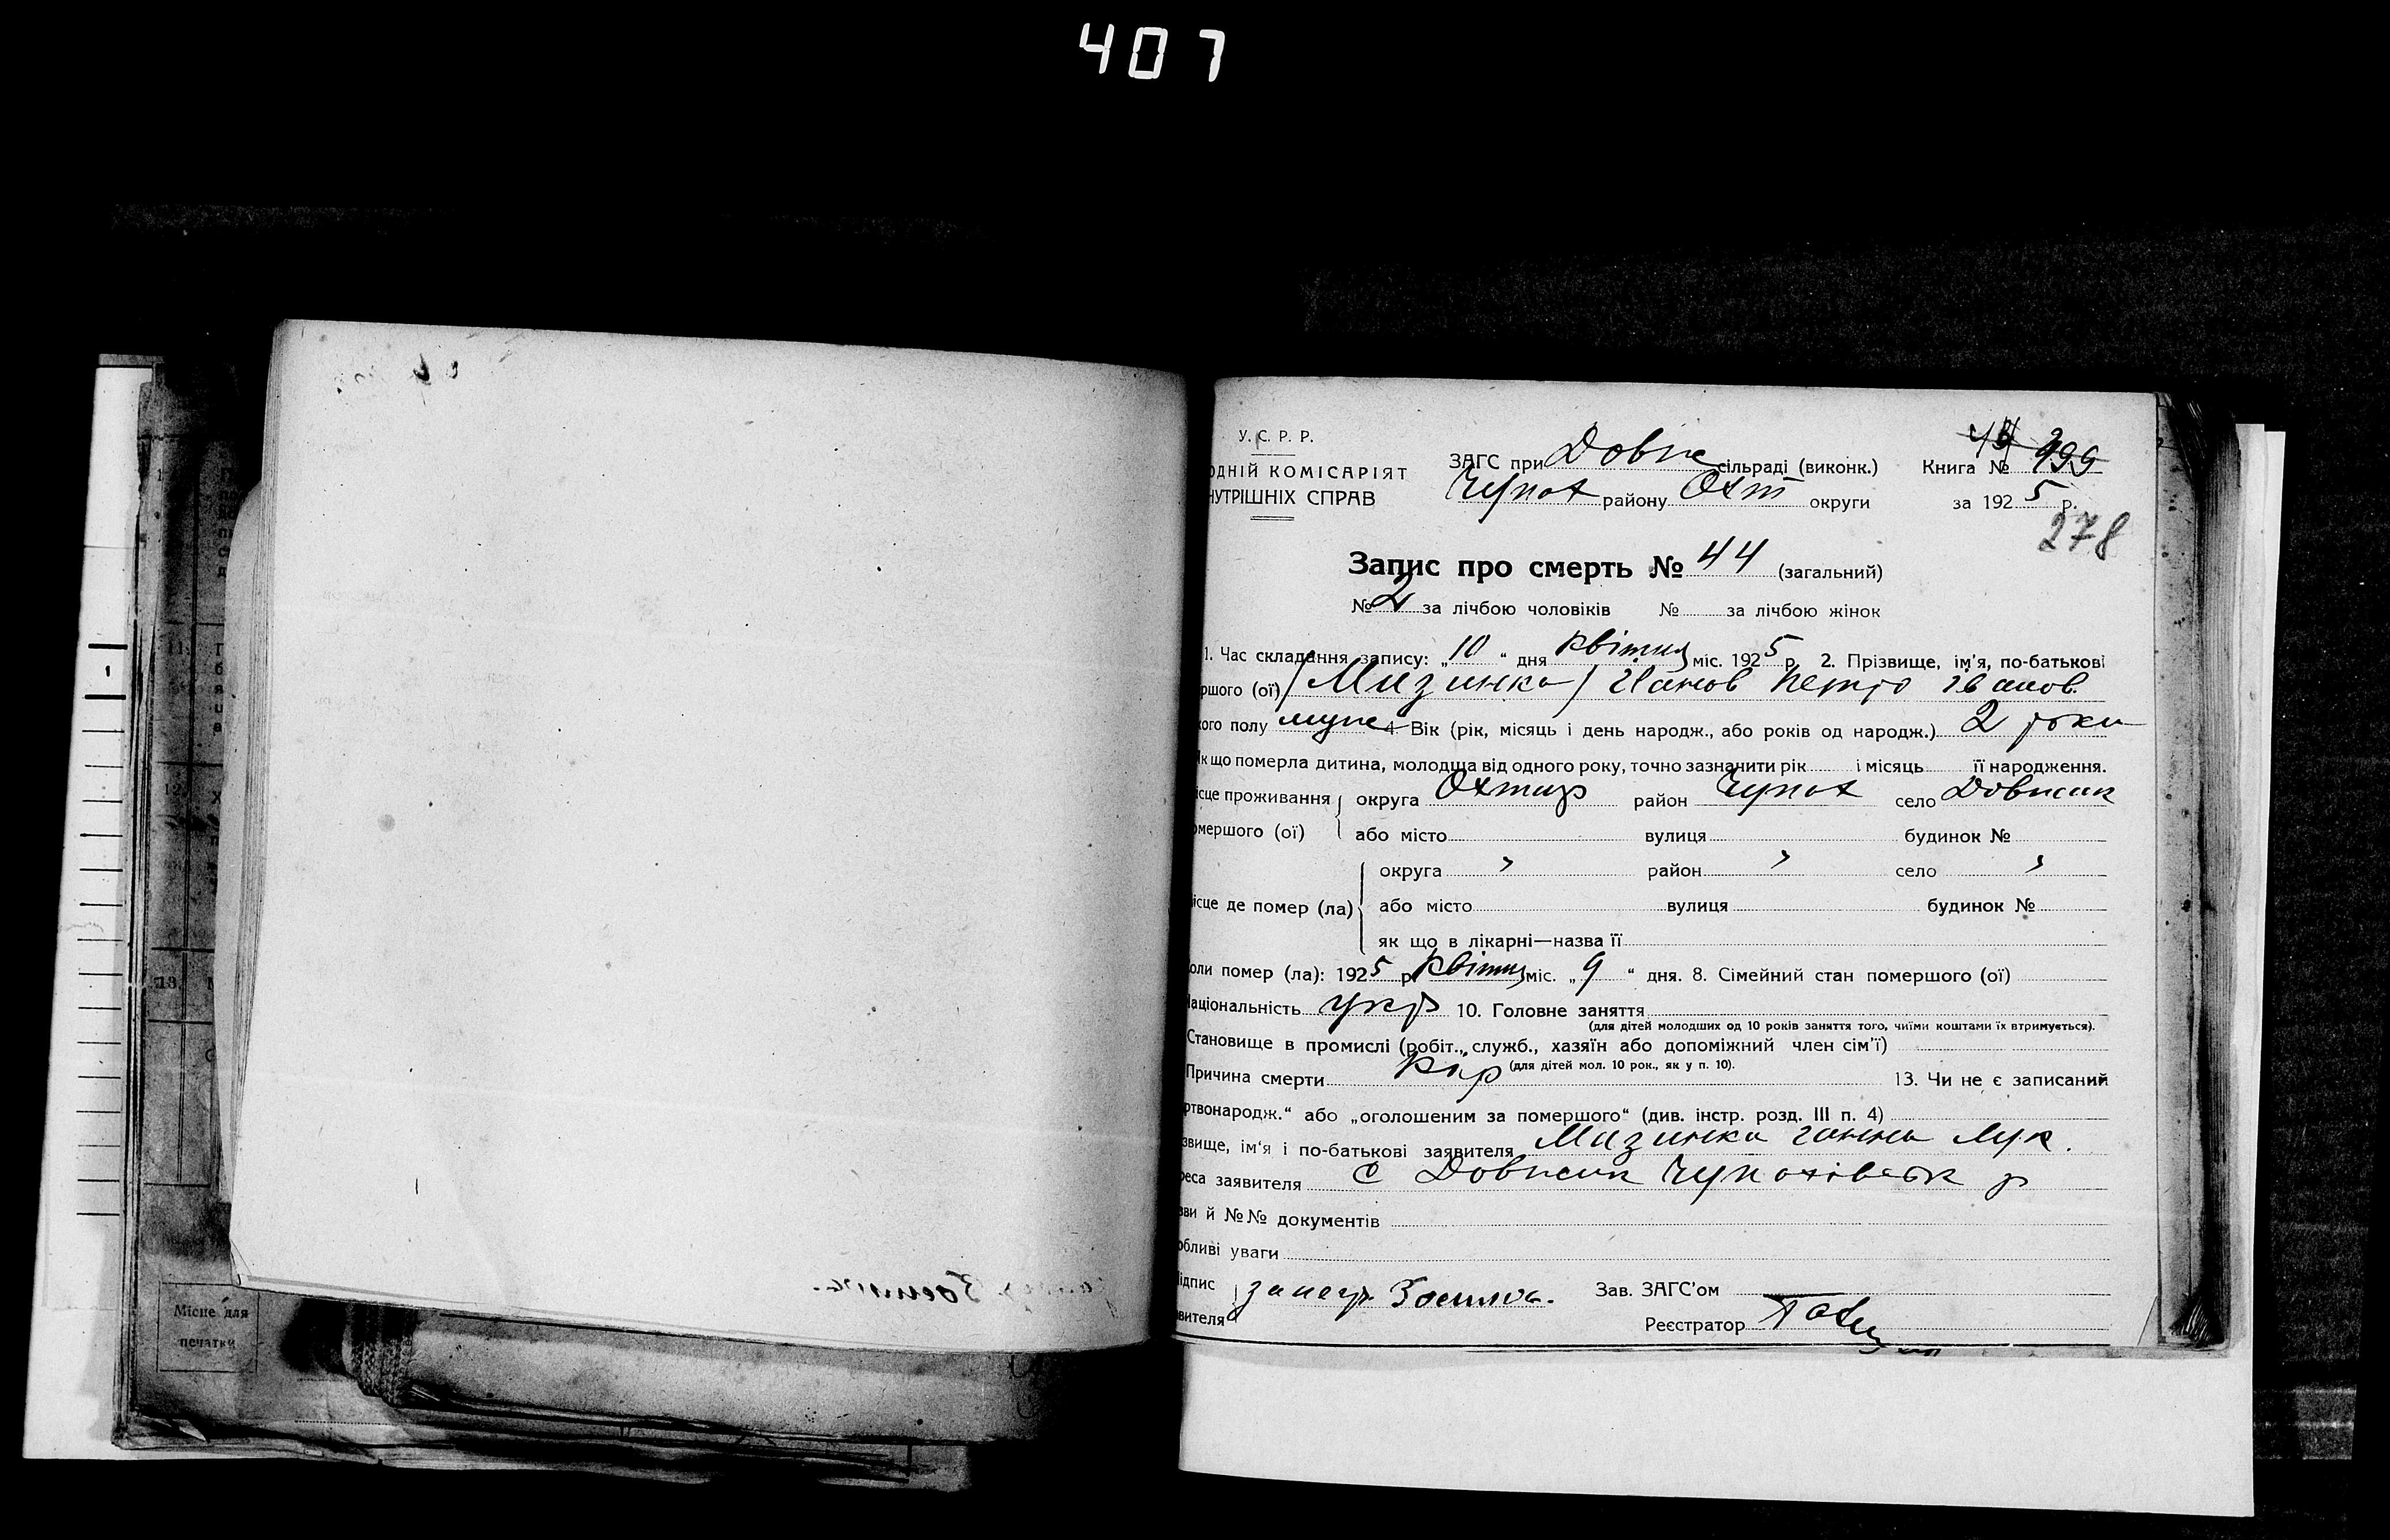 407
У. С. Р. Р.
ОДНІЙ КОМІСАРІЯТ
НУТРІШНІХ СПРАВ
ЗАГС при Довж сільраді (виконк.)
Чупах району Охт округи
Книга № 999
за 1925 р.
278
Запис про смерть № 44 (загальний)
№ 2 за лічбою чоловіків № за лічбою жінок
1. Час складання запису: „10“ дня квітня міс. 1925 р. 2. Прізвище, ім'я, по-батькові
ршого (ої) /Мизинка/ Петро Іванов.
кого полу муж 4. Вік (рік, місяць і день народж., або років од народж.) 2 роки
Як що померла дитина, молодша від одного року, точно зазначити рік і місяць її народження.
ісце проживання округа Охтир район Чупах село Довжик
омершого (ої) або місто вулиця будинок №
округа " район " село "
ісце де помер (ла) або місто вулиця будинок №
як що в лікарні—назва її
оли помер (ла): 1925 р. квітня міс. „9“ дня. 8. Сімейний стан помершого (ої)
Національність укр 10. Головне заняття
(для дітей молодших од 10 років заняття того, чиїми коштами їх втримується).
Становище в промислі (робіт., служб., хазяїн або допоміжний член сім'ї)
(для дітей мол. 10 рок., як у п. 10).
Причина смерти Кір 13. Чи не є записаний
ртвонародж.“ або „оголошеним за помершого“ (див. інстр. розд. III п. 4)
звище, ім'я і по-батькові заявителя Мизинка Ганна Лук.
реса заявителя с Довжик Чупахівськ р
зви й №№ документів
обливі уваги
ідпис
явителя
Зав. ЗАГС'ом
Реєстратор
Місце для
печатки